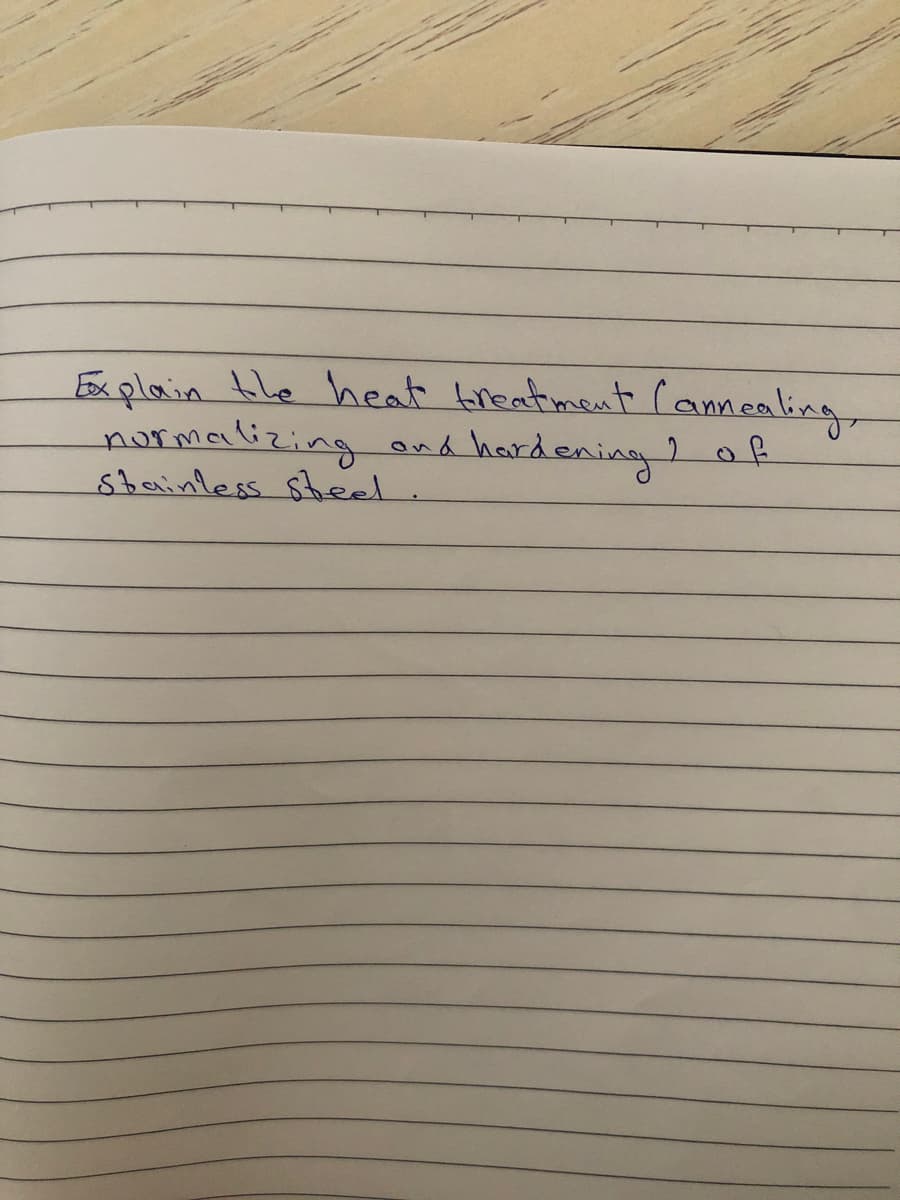 Explain the heat treatment (annealing,
normalizing and hardening) of
stainless steel.